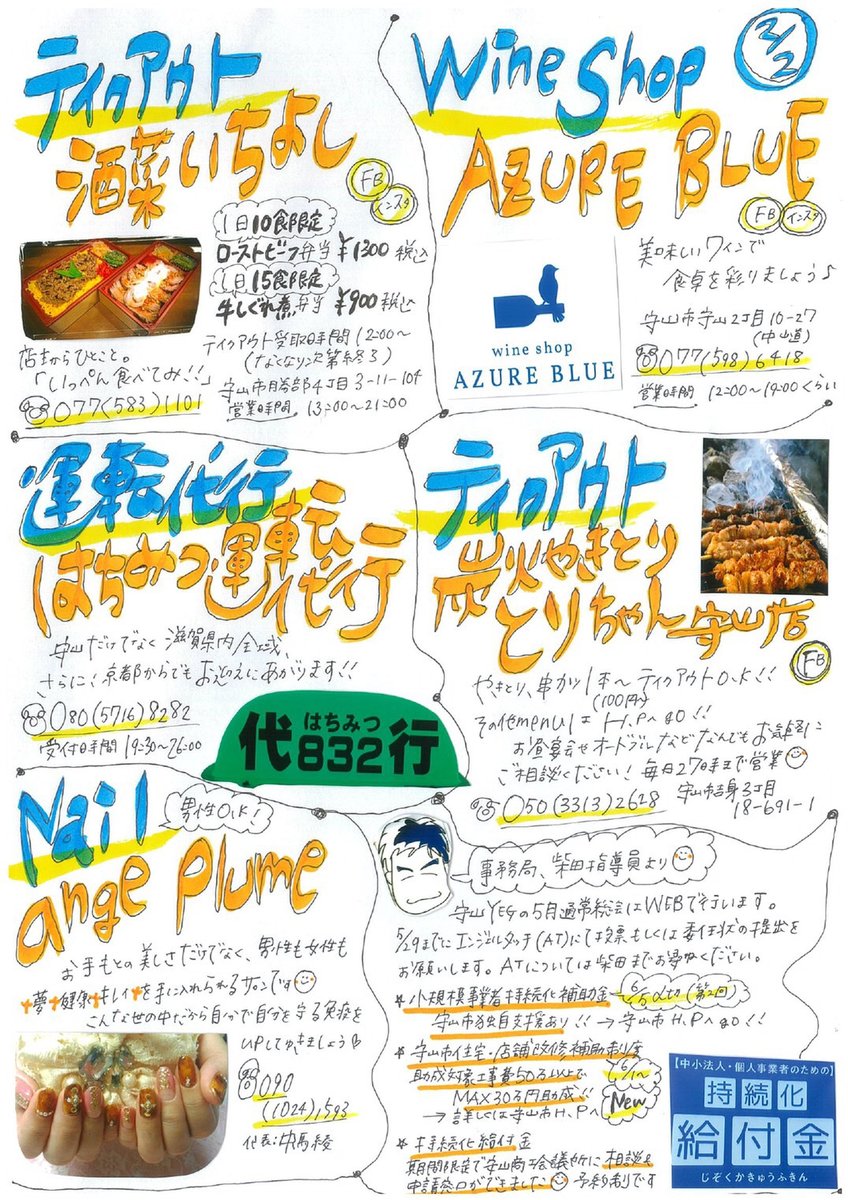 テイクアウト
酒菜いちよし
FB
インスタ
1日10食限定
ローストビーフ弁当 ¥1300 税込
1日15食限定
牛しぐれ煮弁当 ¥900 税込
テイクアウト受取時間 12:00〜
(なくなり次第終了)
店主からひとこと。
「いっぺん食べてみ!!」
077(583)1101
守山市勝部4丁目3-11-104
営業時間 17:00〜21:00
2/2
Wine Shop
AZURE BLUE
FB
インスタ
wine shop
AZURE BLUE
美味しいワインで
食卓を彩りましょう♪
守山市守山2丁目10-27
(中山道)
077(598)6418
営業時間 12:00〜19:00くらい
運転代行
はちみつ運転代行
守山だけでなく滋賀県内全域、
さらに!京都からでもお迎えにあがります!!
080(5716)8282
受付時間 19:30〜26:00
はちみつ
代832行
テイクアウト
炭火やきとり
とりちゃん守山店
FB
やきとり、串カツ1本〜テイクアウトO.K!!
(100円)
その他menuは H.Pへ GO!!
お昼宴会やオードブルなどなんでもお気軽に
ご相談ください!毎日27時まで営業
050(3313)2628
守山市吉身3丁目
18-691-1
Nail
男性O.K!
ange plume
お手もとの美しさだけでなく、男性も女性も
夢 健康 キレイを手に入れられるサロンです
こんな世の中だから自分で自分を守る免疫を
UPしてゆきましょう
090
(1024)1593
代表:中馬綾
事務局、柴田指導員より
守山YEGの5月通常総会はWEBで行います。
5/29までにエンジェルタッチ(AT)にて投票もしくは委任状の提出を
お願いします。ATについては柴田までお尋ねください。
★小規模事業者持続化補助金 6/5〆切(第2回)
守山市独自支援あり!!→守山市H.PへGO!!
★守山市住宅・店舗改修補助制度
助成対象工事費50万以上で
MAX30万円助成!!
→詳しくは守山市H.Pへ
6/1〜
New
★持続化給付金
期間限定で守山商工会議所に相談&
申請窓口ができました 予約制です
【中小法人・個人事業者のための】
持続化
給付金
じぞくかきゅうふきん